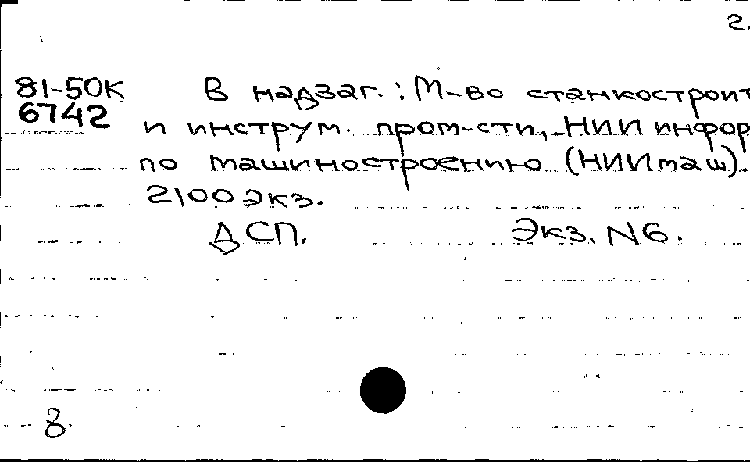 2.
81-50К В надзаг.: М-во станкостроит
6742 и инструм. пром-сти, НИИ инфор
по машиностроению (НИИмаш).
2100 экз.
ДСП. Экз. N6.
8.